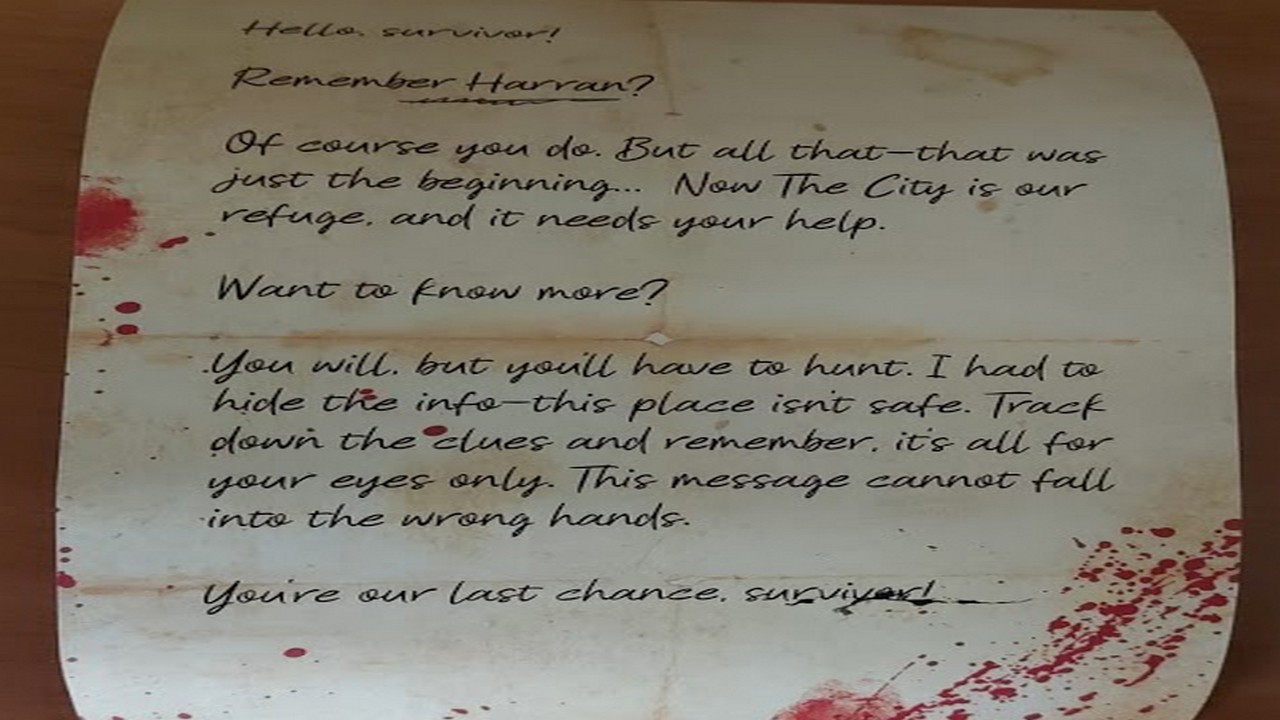 Hello, survivor!
Remember Harran?
Of course you do. But all that—that was
just the beginning... Now The City is our
refuge, and it needs your help.
Want to know more?
You will, but you'll have to hunt. I had to
hide the info—this place isn't safe. Track
down the clues and remember, it's all for
your eyes only. This message cannot fall
into the wrong hands.
You're our last chance, survivor!